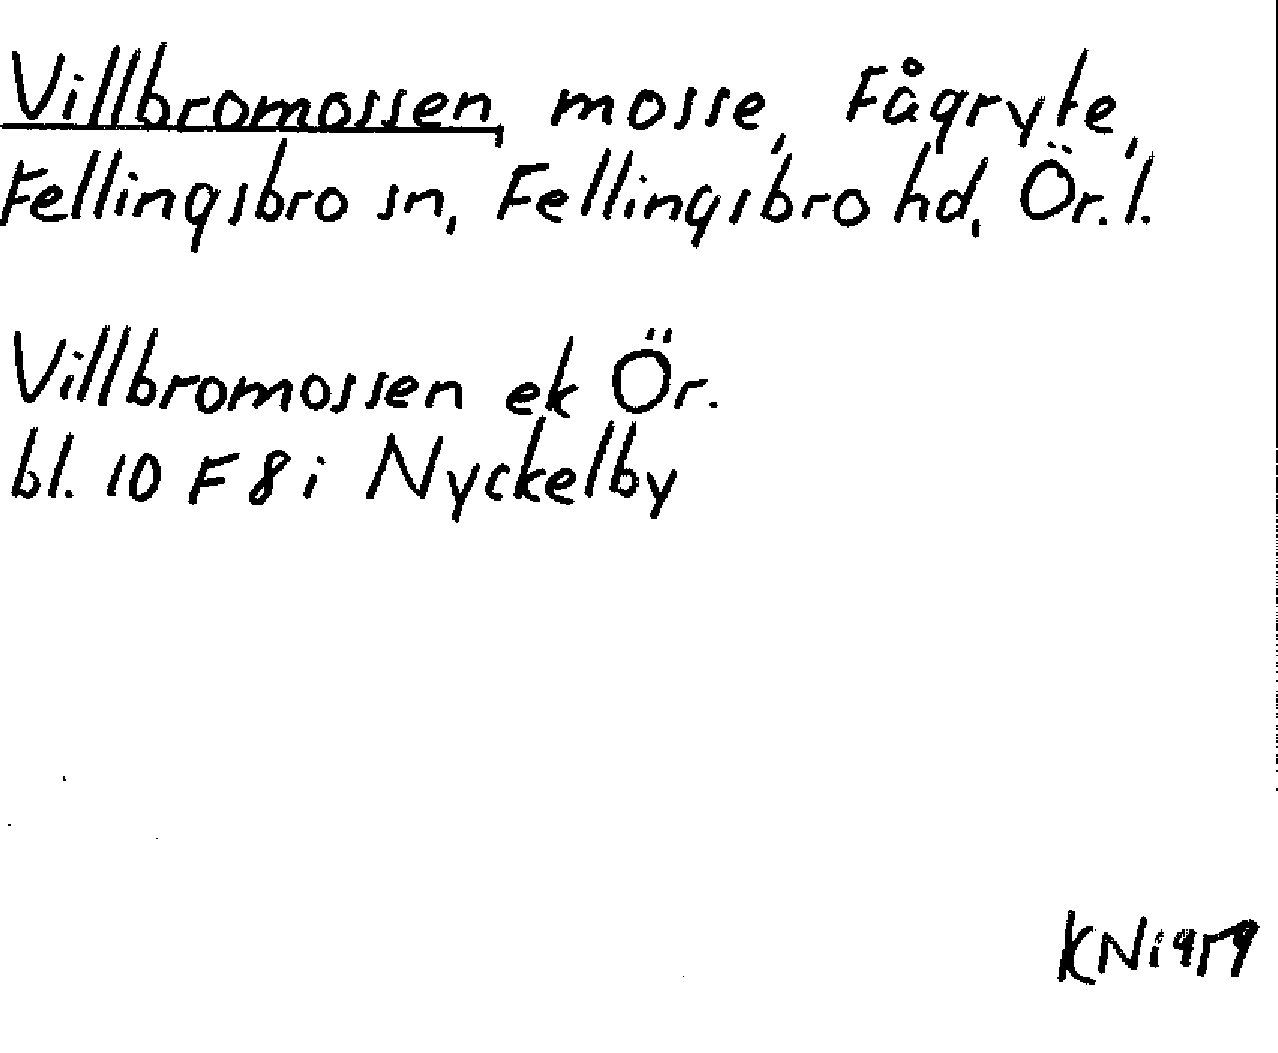 Villbromossen, mosse, Fågryte,
Fellingsbro sn, Fellingsbro hd, Ör. l.
Villbromossen ek Ör.
bl. 10 F 8 i Nyckelby